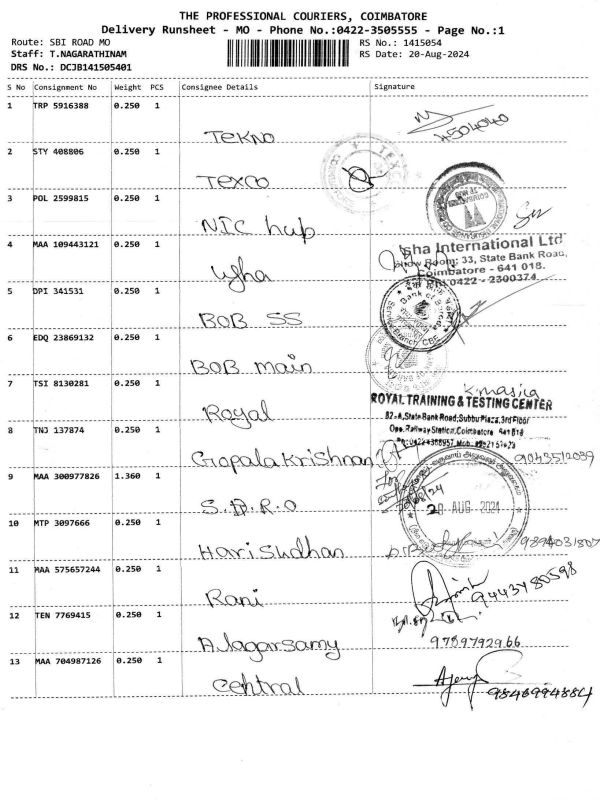 THE PROFESSIONAL COURIERS, COIMBATORE
Delivery Runsheet - MO - Phone No.:0422-3505555 - Page No.:1
Route: SBI ROAD MO
RS No.: 1415054
Staff: T.NAGARATHINAM
RS Date: 20-Aug-2024
DRS No.: DCJB141505401
S No Consignment No Weight PCS Consignee Details Signature
1 TRP 5916388 0.250 1
Tekno
4504040
2 STY 408806 0.250 1
Texco
3 POL 2599815 0.250 1
NIC hup
4 MAA 109443121 0.250 1
Isha International Ltd
Show Room: 33, State Bank Road,
Coimbatore - 641 018.
0422 - 2300374
Ugha
5 DPI 341531 0.250 1
Bank of Baroda
Service Branch CBE
BOB SS
6 EDQ 23869132 0.250 1
BOB main
7 TSI 8130281 0.250 1
ROYAL TRAINING & TESTING CENTER
82-A, State Bank Road, Subbu Plaza, 3rd Floor
Opp. Railway Station, Coimbatore
Royal
8 TNJ 137874 0.250 1
Gopala Krishnan
9043512039
9 MAA 300977826 1.360 1
20 AUG 2024
S.D.R.O
10 MTP 3097666 0.250 1
Hari Sudhan
9894031807
11 MAA 575657244 0.250 1
Rani
9443780598
12 TEN 7769415 0.250 1
Alagarsamy
9789792966
13 MAA 704987126 0.250 1
Central
9848994884